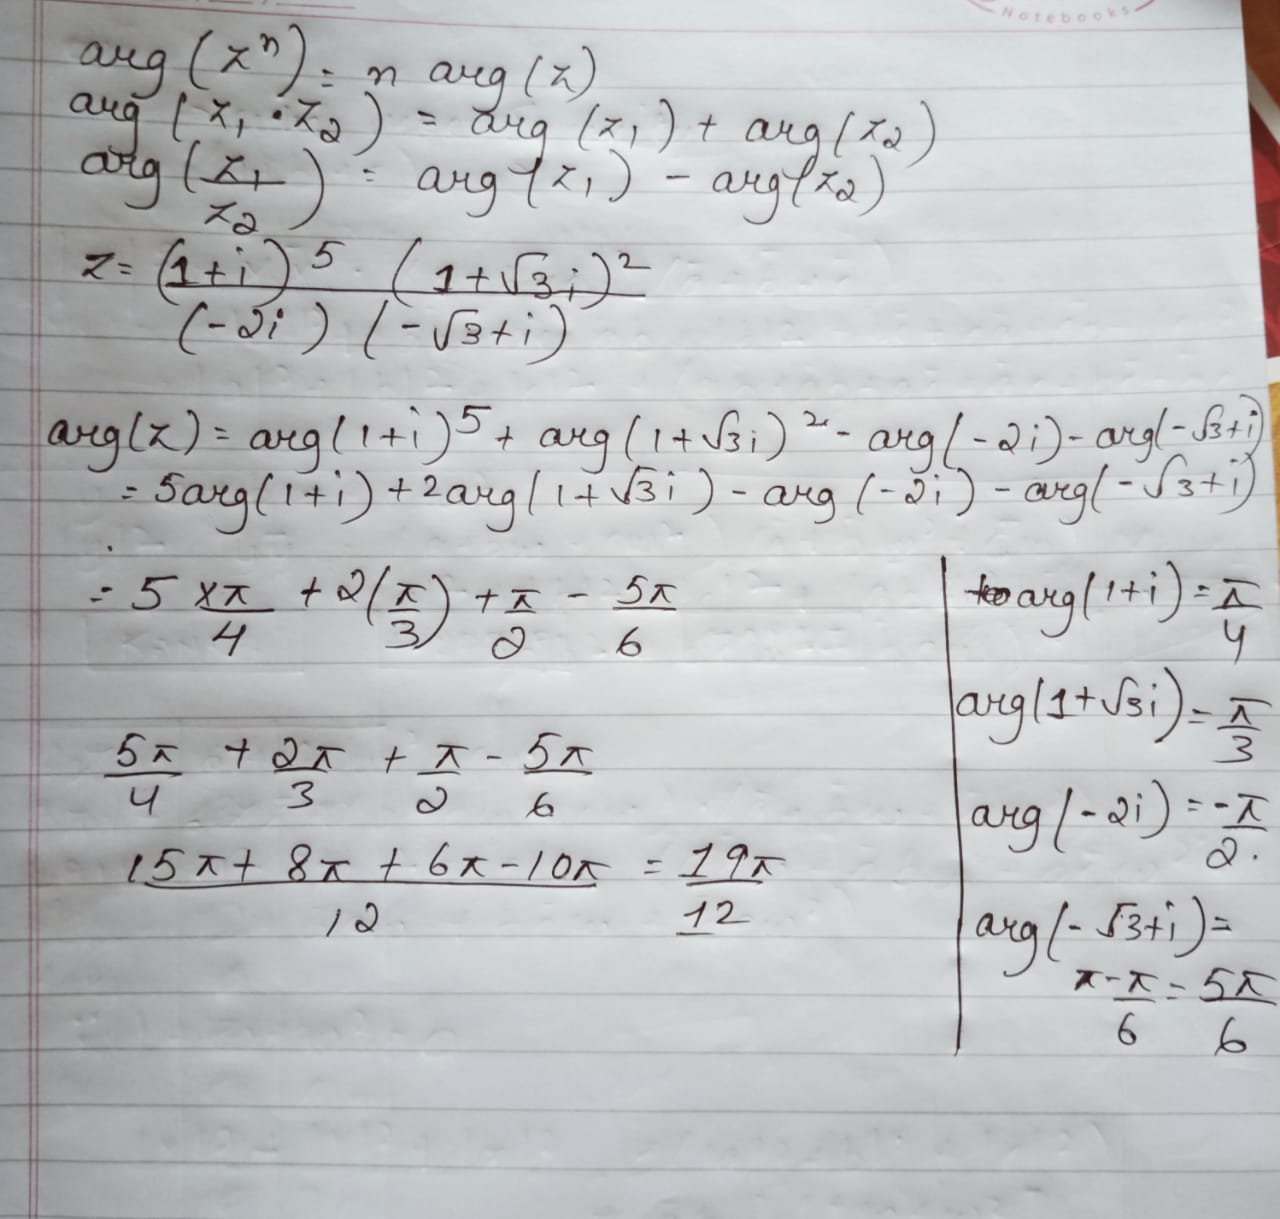 Notebooks
arg(zⁿ) = n arg(z)
arg(z₁·z₂) = arg(z₁) + arg(z₂)
arg(z₁/z₂) = arg(z₁) - arg(z₂)
z = (1+i)⁵ (1+√3i)² / (-2i) (-√3+i)
arg(z) = arg(1+i)⁵ + arg(1+√3i)² - arg(-2i) - arg(-√3+i)
= 5arg(1+i) + 2arg(1+√3i) - arg(-2i) - arg(-√3+i)
= 5×π/4 + 2(π/3) + π/2 - 5π/6
5π/4 + 2π/3 + π/2 - 5π/6
15π + 8π + 6π - 10π / 12 = 19π/12
arg(1+i) = π/4
arg(1+√3i) = π/3
arg(-2i) = -π/2.
arg(-√3+i) =
π - π/6 = 5π/6